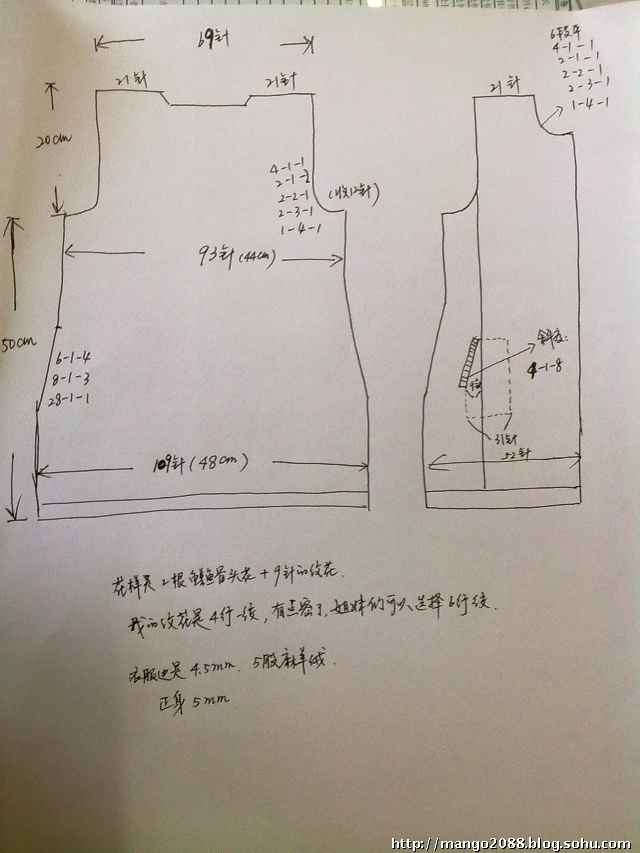 69针
21针
21针
20cm
4-1-1
2-1-2
2-2-1
2-3-1
1-4-1
(收12针)
93针(44cm)
50cm
6-1-4
8-1-3
28-1-1
109针(48cm)
21针
4-1-1
2-1-1
2-2-1
2-3-1
1-4-1
斜度:
4-1-8
31针
52针
花样是2根鳗鱼骨头花+9针的绞花.
我的绞花是4行一绞,有点密了,姐妹们可以选择6行绞.
衣服边是4.5mm. 5股麻羊绒.
正身5mm
http://mango2088.blog.sohu.com